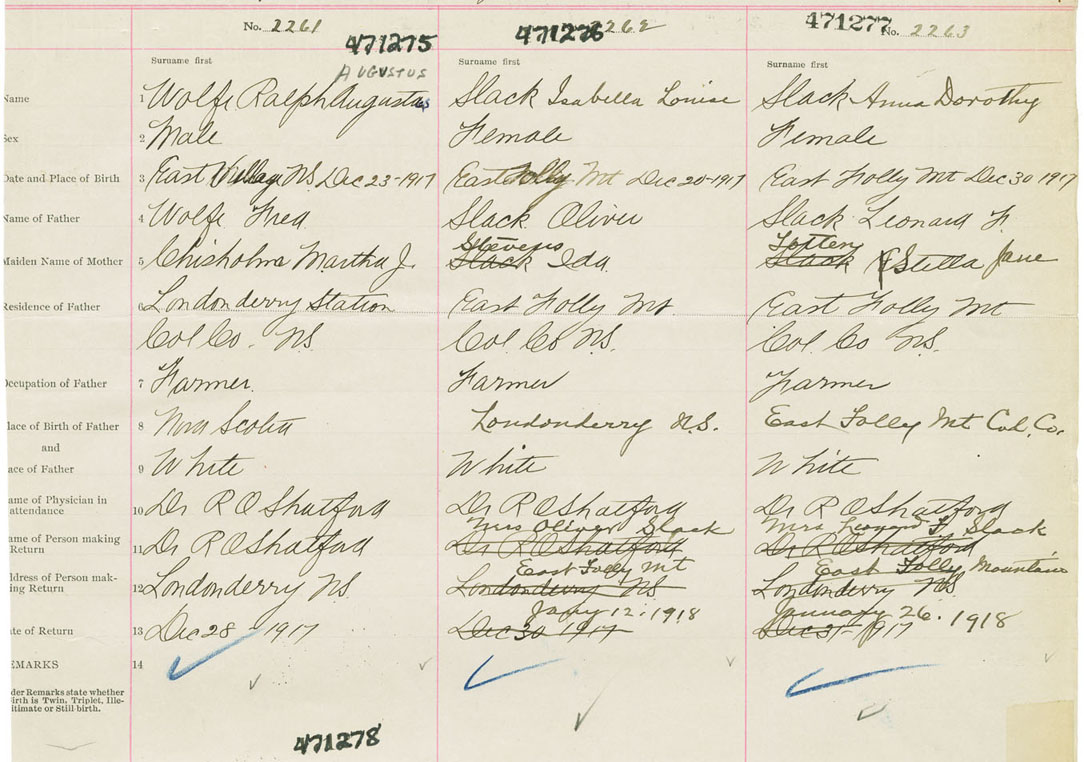 No. 2261
471275
471276 2262
471277 No. 2263
Surname first
Surname first
Surname first
AUGUSTUS
Name 1 Wolfe Ralph Augustus
Slack Isabella Louise
Slack Anna Dorothy
Sex 2 Male
Female
Female
Date and Place of Birth 3 East Village NS Dec 23-1917
East Folly Mt Dec 20-1917
East Folly Mt Dec 30 1917
Name of Father 4 Wolfe Fred
Slack Oliver
Slack Leonard F.
Stevens
Totten
Maiden Name of Mother 5 Chisholm Martha J.
Slack Ida
Slack Stella Jane
Residence of Father 6 Londonderry Station
East Folly Mt.
East Folly Mt
Col. Co. NS.
Col. Co NS.
Col. Co NS.
Occupation of Father 7 Farmer.
Farmer
Farmer
Place of Birth of Father 8 Nova Scotia
Londonderry N.S.
East Folly Mt Col. Co.
and
ace of Father 9 White
White
White
ame of Physician in
attendance 10 Dr R O Shatford
Dr R O Shatford
Dr R O Shatford
Mrs Oliver Slack
Mrs Leonard F. Slack
ame of Person making
Return 11 Dr R O Shatford
Dr R O Shatford
Dr R O Shatford
East Folly Mt
East Folly Mountain
ddress of Person mak-
ing Return 12 Londonderry NS
Londonderry NS
Londonderry NS
Jany 12. 1918
January 26. 1918
te of Return 13 Dec 28-1917
Dec 30 1917
Dec 31-1917
EMARKS 14
der Remarks state whether
irth is Twin, Triplet, Ille-
itimate or Still-birth.
471278